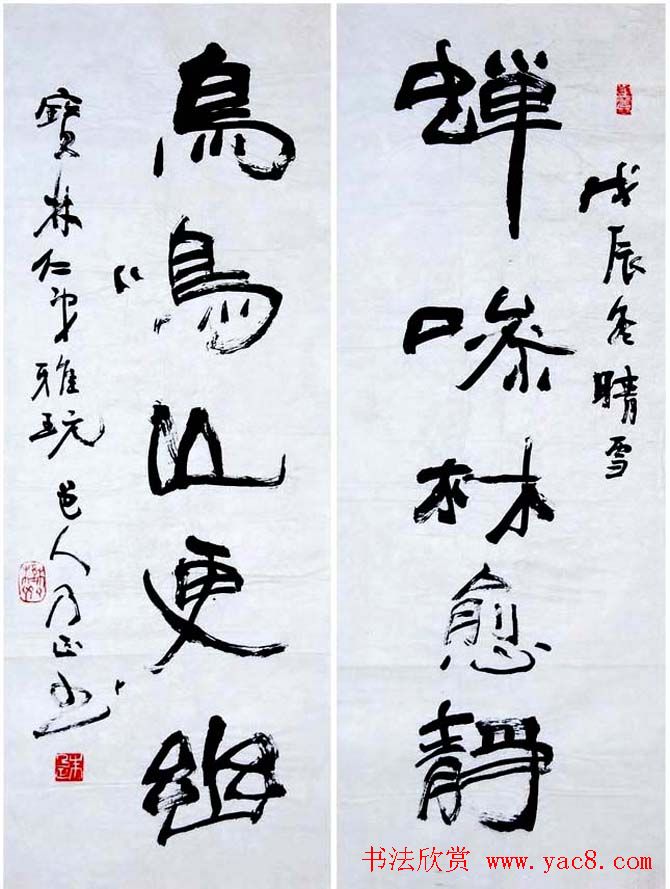 戊辰冬晴雪
蝉噪林愈静
鳥鳴山更幽
寶林仁弟雅玩 邑人乃正书
书法欣赏 www.yac8.com